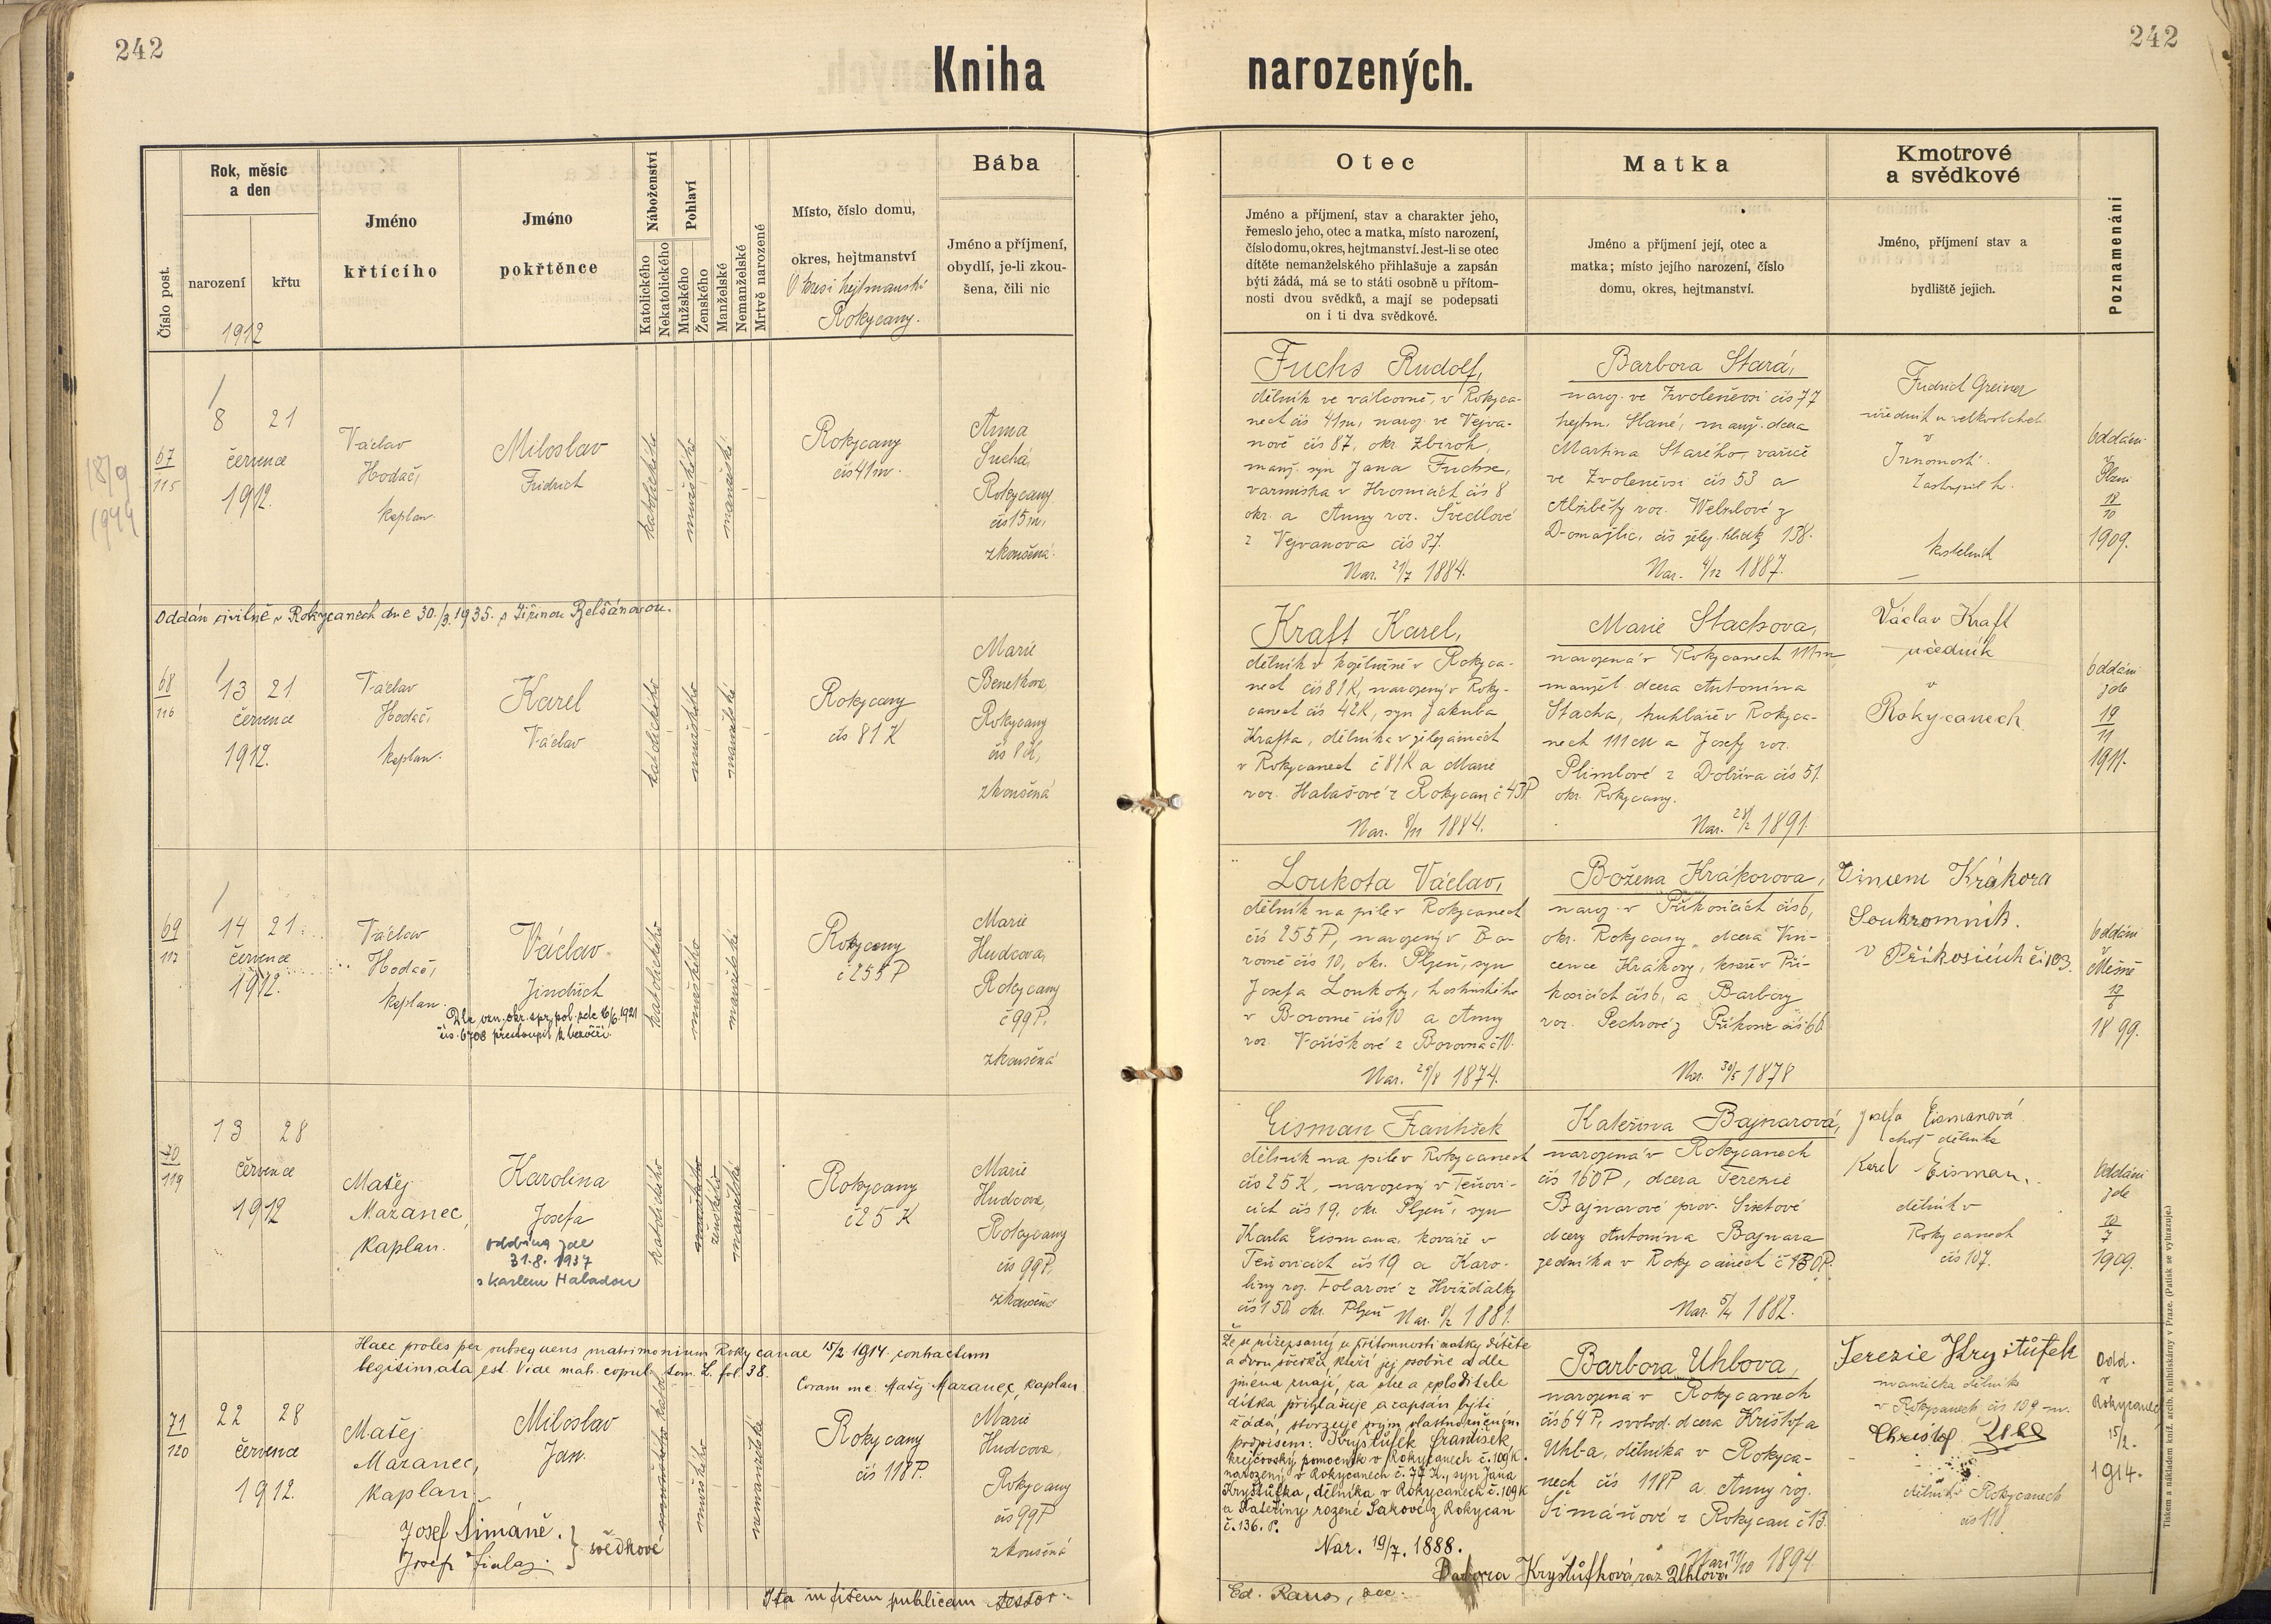 242
242
Kniha
narozených.
Číslo post.
Rok, měsíc
a den
narození
křtu
1912
Jméno
křtícího
Jméno
pokřtěnce
Náboženství
Katolického
Nekatolického
Pohlaví
Mužského
Ženského
Manželské
Nemanželské
Mrtvě narozené
Místo, číslo domu,
okres, hejtmanství
Okresi hejtmanství
Rokycany.
Bába
Jméno a příjmení,
obydlí, je-li zkou-
šena, čili nic
Otec
Jméno a příjmení, stav a charakter jeho,
řemeslo jeho, otec a matka, místo narození,
číslo domu, okres, hejtmanství. Jest-li se otec
dítěte nemanželského přihlašuje a zapsán
býti žádá, má se to státi osobně u přítom-
nosti dvou svědků, a mají se podepsati
on i ti dva svědkové.
Matka
Jméno a příjmení její, otec a
matka; místo jejího narození, číslo
domu, okres, hejtmanství.
Kmotrové
a svědkové
Jméno, příjmení stav a
bydliště jejich.
Poznamenání
18/9
1944
67
115
8 21
července
1912.
Václav
Hodač,
kaplan.
Miloslav
Fridrich
katolického
mužského
manželské
Rokycany
čís 41 m.
Anna
Suchá,
Rokycany
čís 15 m,
zkoušená.
Fuchs Rudolf,
dělník ve válcovně, v Rokyca-
nech čís 41m, naroz. ve Vejva-
nově čís 87, okr. Zbiroh,
manž. syn Jana Fuchse,
v Hrosnicích čís 8
okr. a Anny roz. Švedlové
z Vejvanova čís 37.
Nar. 21/7 1884.
Barbora Stará,
naroz. ve Zvoleněvsi čís 77
hejtm. Slané, manž. dcera
Martina Starého, vařiče
ve Zvoleněvsi čís 53 a
Alžběty roz. Welzlové z
Domažlic, čís želez. hlídky 138.
Nar. 4/12 1887.
Fridrich Greiner
úředník u velkoobchodu
v
Zastoupil h.
kostelník
Oddáni
v
Plzni
18
10
1909.
Oddán civilně v Rokycanech dne 30./3. 1935. s Jiřinou Belšánovou.
68
116
13 21
července
1912.
Václav
Hodač,
kaplan.
Karel
Václav
katolického
mužského
manželské
Rokycany
čís 81 K
Marie
Benetkova,
Rokycany
čís 8 K,
zkoušená
Kraft Karel,
dělník v koželužně v Rokyca-
nech čís 81 K, narozený v Roky-
canech čís 42K, syn Jakuba
Krafta, dělníka v železárnách
v Rokycanech č 81K a Marie
roz. Halašové z Rokycan č 43P
Nar. 8/11 1884.
Marie Stachova,
narozená v Rokycanech 111m
manžel. dcera Antonína
Stacha, truhláře v Rokyca-
nech 111 m a Josefy roz.
Plimlové z Dobříva čís 51.
okr. Rokycany.
Nar. 28/2 1891.
Václav Kraft
učedník
v
Rokycanech
Oddáni
zde
19
11
1911.
69
117
14 21.
července
1912.
Václav
Hodač,
kaplan.
Václav
Jindřich
Dle ozn. okr. spr. pol. zde 16/6.1921
čís. 6708 přestoupil k bezvěří.
katolického
mužského
manželské
Rokycany
č 255 P
Marie
Hudcova,
Rokycany
č 99 P,
zkoušená
Loukota Václav,
dělník na pile v Rokycanech
čís 255 P, narozený v Bo-
rovně čís 10, okr. Plzeň, syn
Josefa Loukoty, hostinského
v Borovně čís 10 a Anny
roz. Voříškové z Borovna č 10.
Nar. 29/8 1874.
Božena Krákorova,
naroz. v Příkosicích čís 6,
okr. Rokycany, dcera Vin-
cence Krákory, kováře v Pří-
kosicích čís 6, a Barbory
roz. Pechové z Příkosic čís 66
Nar. 30/5 1878
Vincenc Krákora
Soukromník.
v Příkosicích či 103.
Oddáni
v
Mešně
13
6
1899.
70
119
13 28
července
1912
Matěj
Mazanec,
kaplan.
Karolina
Josefa
oddána zde
31.8.1937
s Karlem Haladou
katolického
mužského
ženského
manželské
Rokycany
č 25 K
Marie
Hudcova,
Rokycany
čís 99 P,
zkoušená
Eisman František
dělník na pile v Rokycanech
čís 25 K, narozený v Těňovi-
cích čís 19, okr. Plzeň, syn
Karla Eismana, kováře v
Těňovicích čís 19 a Karo-
liny roz. Tolarové z Hvížďalky
čís 150 okr. Plzeň Nar. 8/2 1881.
Kateřina Bajnarová,
narozená v Rokycanech
čís 160 P, dcera Terezie
Bajnarové prov. Sixtové
dcery Antonína Bajnara
zedníka v Rokycanech č 130P.
Nar. 5/4 1882.
Josefa Eismanová
choť dělníka
Karel Eisman.
dělník v
Rokycanech
čís 107.
Oddáni
zde
10
7
1909.
Haec proles per subsequens matrimonium Rokycanae 15/2 1914. contractum
legitimata est. Vide matr. copul. tom. L. fol. 38.
Coram me: Matěj Mazanec, kaplan
71
120
22 28
července
1912.
Matěj
Mazanec,
kaplan.
Miloslav
Jan.
mužského
nemanželské
Rokycany
čís 118 P.
Marie
Hudcova,
Rokycany
čís 99 P
zkoušená
Josef Šimáně.
Josef Fiala.
} svědkové
Že se nížepsaný u přítomnosti matky dítěte
a dvou svědků, kteří jej osobně a dle
jména znají, za otce a zploditele
dítka přihlašuje a zapsán býti
žádá, stvrzuje svým vlastnoručním
podpisem: Kryštůfek František,
krejčovský pomocník v Rokycanech č. 109 K.
narozený v Rokycanech č. 77 K., syn Jana
Kryštůfka, dělníka v Rokycanech č. 109K
a Kateřiny rozené Sakové z Rokycan
č. 136. P.
Nar. 19/7. 1888.
Barbora Uhlova,
narozená v Rokycanech
čís 64 P, svobod. dcera Krištofa
Uhla, dělníka v Rokyca-
nech čís 118P a Anny roz.
Šimáňové z Rokycan č 13.
1894
Barbora Kryštůfková roz Uhlová
Terezie Kryštůfek
manželka dělníka
v Rokycanech čís 109 m.
Christof
dělník v Rokycanech
čís 118
Odd.
v
Rokycanech
15/2.
1914.
Ita in fidem publicam testor:
Ed. Raus,
Tiskem a nákladem kníž. arcib. knihtiskárny v Praze. (Patisk se vyhrazuje.)